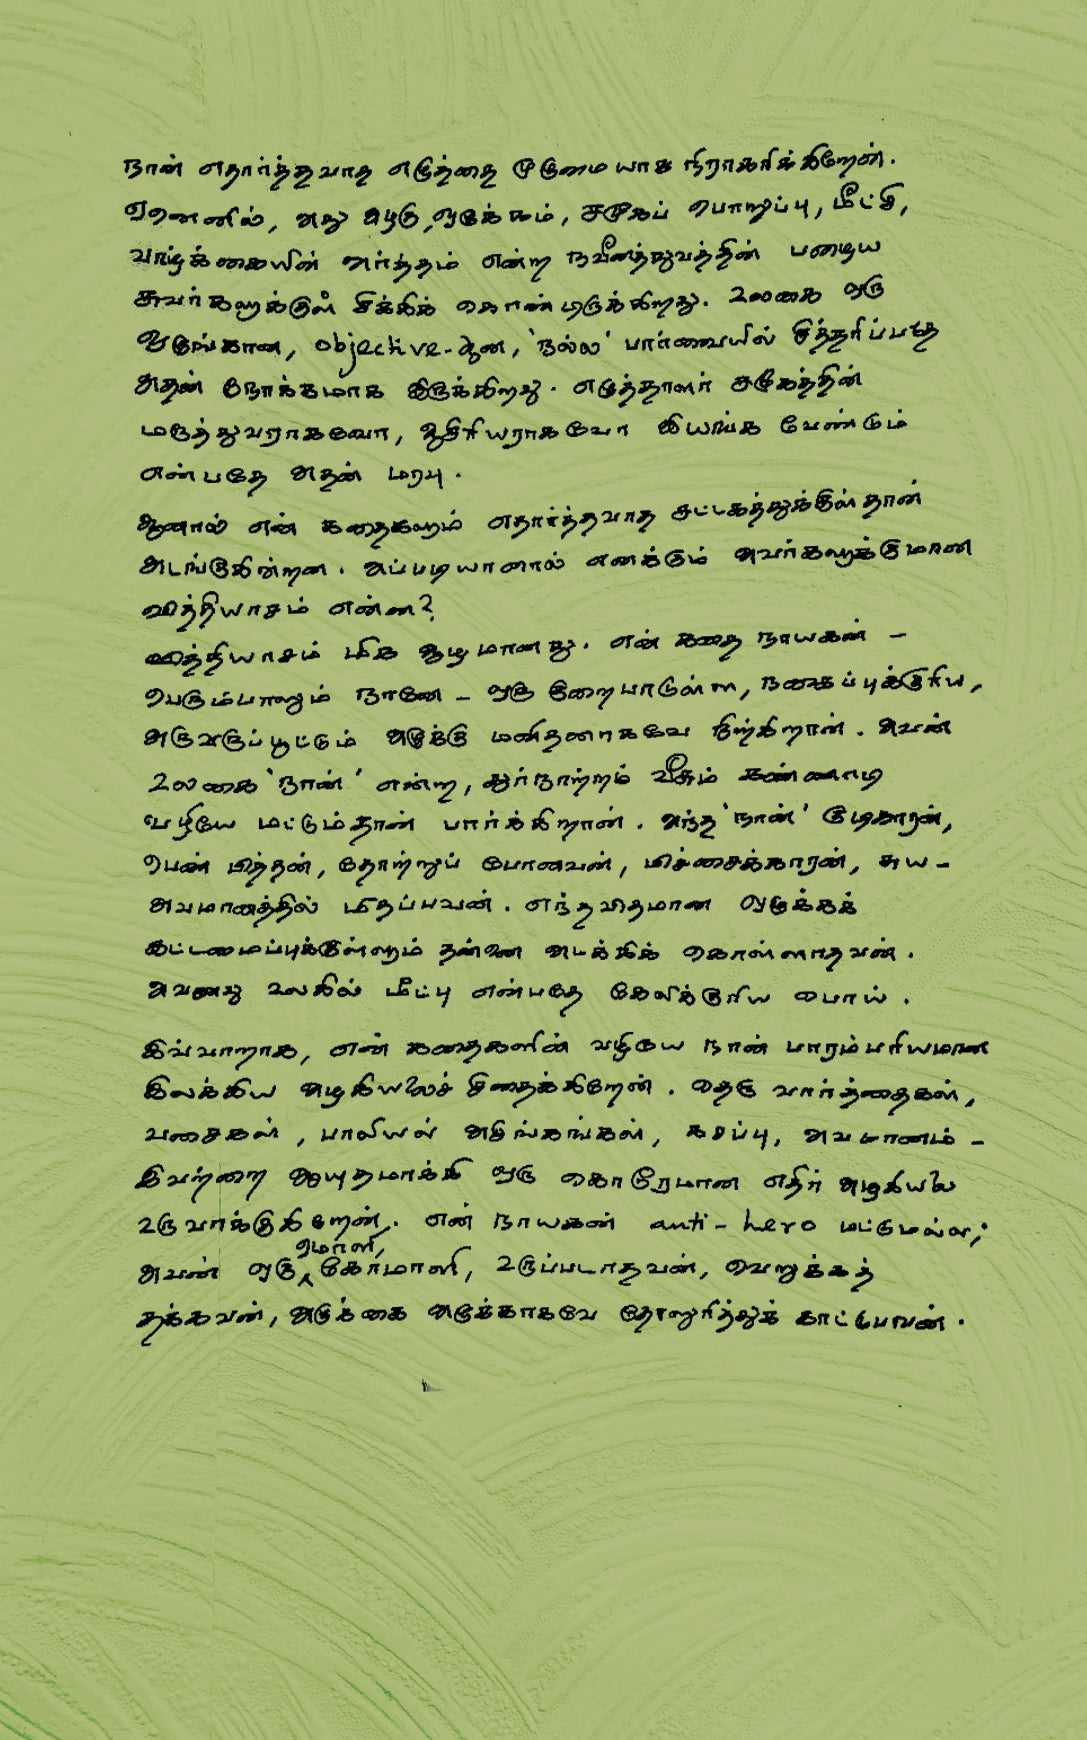 நான் எதார்த்தவாத எழுத்தை முழுமையாக நிராகரிக்கிறேன்.
ஏனெனில், அது அழகு, ஒழுக்கம், சமூகப் பொறுப்பு, மீட்சி,
வாழ்க்கையின் அர்த்தம் என்ற நவீனத்துவத்தின் பழைய
சுவர்களுக்குள் சிக்கிக் கொண்டிருக்கிறது. உலகை ஒரு
ஒழுங்கான, objective-ஆன, 'நல்ல' பார்வையில் சித்தரிப்பதே
அதன் நோக்கமாக இருக்கிறது. எழுத்தாளர் சமூகத்தின்
மருத்துவராகவோ, ஆசிரியராகவோ இயங்க வேண்டும்
என்பதே அதன் மரபு.
ஆனால் என் கதைகளும் எதார்த்தவாத சட்டகத்துக்குள்தான்
அடங்குகின்றன. அப்படியானால் எனக்கும் அவர்களுக்குமான
வித்தியாசம் என்ன?
வித்தியாசம் மிக ஆழமானது. என் கதை நாயகன் –
பெரும்பாலும் நானே – ஒரு குறைபாடுள்ள, நகைப்புக்குரிய,
அருவருப்பூட்டும் அழுக்கு மனிதனாகவே நிற்கிறான். அவன்
உலகை 'நான்' என்ற, துர்நாற்றம் வீசும் கண்ணாடி
வழியே மட்டும்தான் பார்க்கிறான். அந்த 'நான்' குடிகாரன்,
பெண் பித்தன், தோற்றுப் போனவன், பிச்சைக்காரன், சுய-
அவமானத்தில் மிதப்பவன். எந்தவிதமான ஒழுக்கக்
கட்டமைப்புக்குள்ளும் தன்னை அடக்கிக் கொள்ளாதவன்.
அவனது உலகில் மீட்பு என்பதே கேலிக்குரிய பொய்.
இவ்வாறாக, என் கதைகளின் வழியே நான் பாரம்பரியமான
இலக்கிய அழகியலைச் சிதைக்கிறேன். தெரு வார்த்தைகள்,
வசைகள், பாலியல் அசிங்கங்கள், கசப்பு, அவமானம் –
இவற்றை ஆயுதமாக்கி ஒரு கொடூரமான எதிர் அழகியலை
உருவாக்குகிறேன். என் நாயகன் anti-hero மட்டுமல்ல;
அவன் ஒரு ஏமாளி, கோமாளி, உருப்படாதவன், வெறுக்கத்
தக்கவன், அழுக்கை அழுக்காகவே தோலுரித்துக் காட்டுபவன்.